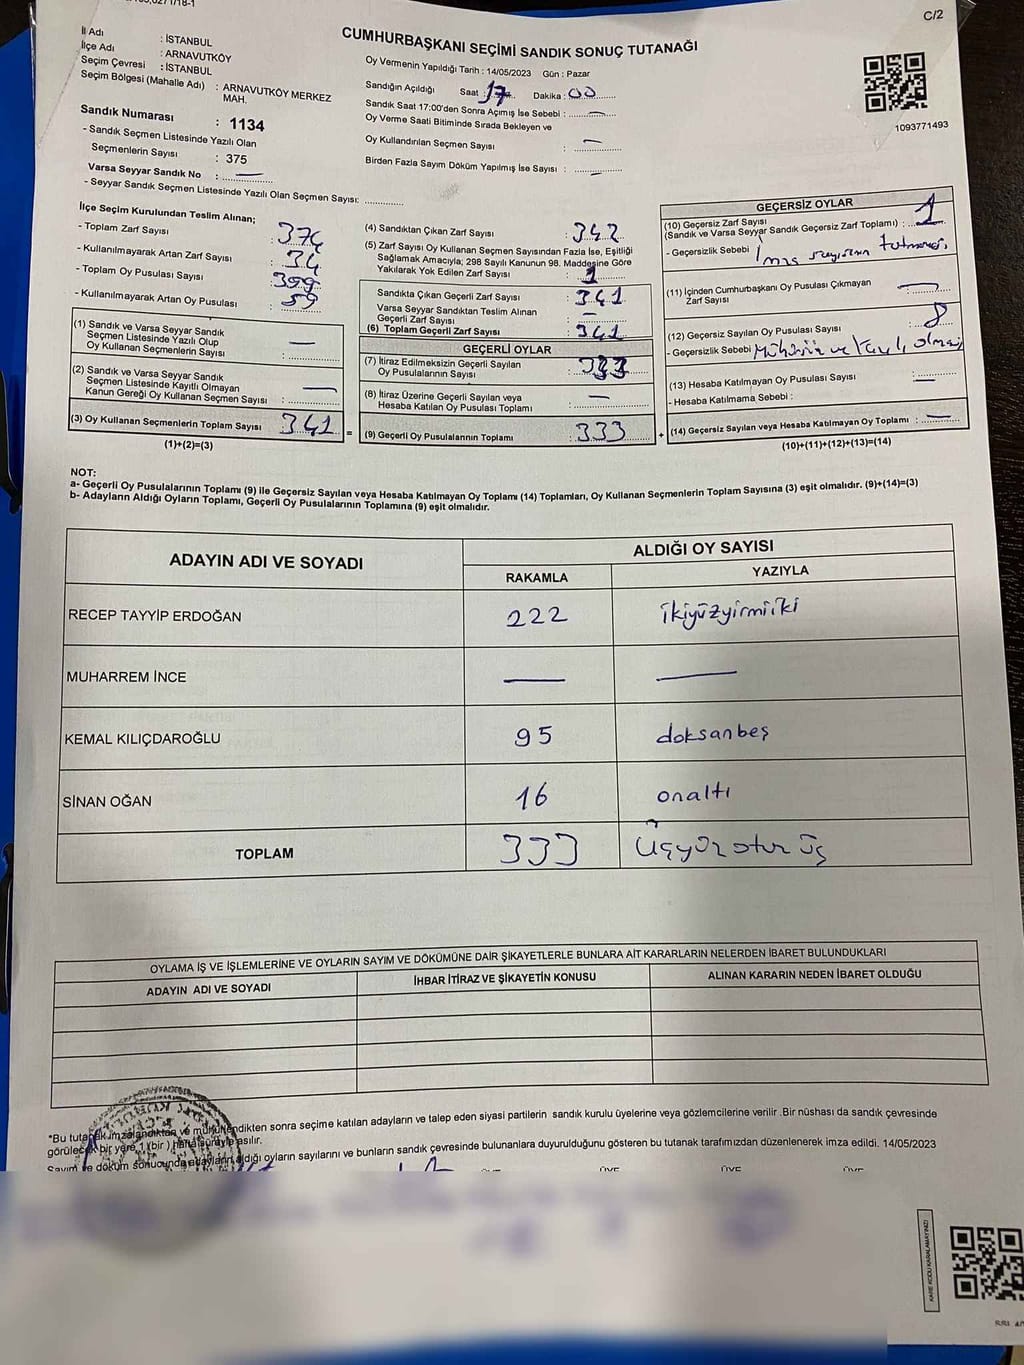 C/2
CUMHURBAŞKANI SEÇİMİ SANDIK SONUÇ TUTANAĞI
İl Adı : İSTANBUL
İlçe Adı : ARNAVUTKÖY
Seçim Çevresi : İSTANBUL
Seçim Bölgesi (Mahalle Adı) : ARNAVUTKÖY MERKEZ
MAH.
Sandık Numarası : 1134
- Sandık Seçmen Listesinde Yazılı Olan
Seçmenlerin Sayısı : 375
Varsa Seyyar Sandık No : —
- Seyyar Sandık Seçmen Listesinde Yazılı Olan Seçmen Sayısı:
Oy Vermenin Yapıldığı Tarih : 14/05/2023 Gün : Pazar
Sandığın Açıldığı Saat : 17 Dakika : 00
Sandık Saat 17:00'den Sonra Açımış İse Sebebi : —
Oy Verme Saati Bitiminde Sırada Bekleyen ve
Oy Kullandırılan Seçmen Sayısı : —
Birden Fazla Sayım Döküm Yapılmış İse Sayısı : —
1093771493
İlçe Seçim Kurulundan Teslim Alınan;
- Toplam Zarf Sayısı : 374
- Kullanılmayarak Artan Zarf Sayısı : 34
- Toplam Oy Pusulası Sayısı : 399
- Kullanılmayarak Artan Oy Pusulası : 59
(1) Sandık ve Varsa Seyyar Sandık
Seçmen Listesinde Yazılı Olup
Oy Kullanan Seçmenlerin Sayısı : —
(2) Sandık ve Varsa Seyyar Sandık
Seçmen Listesinde Kayıtlı Olmayan
Kanun Gereği Oy Kullanan Seçmen Sayısı : —
(3) Oy Kullanan Seçmenlerin Toplam Sayısı : 341
(1)+(2)=(3)
(4) Sandıktan Çıkan Zarf Sayısı : 342
(5) Zarf Sayısı Oy Kullanan Seçmen Sayısından Fazla İse, Eşitliği
Sağlamak Amacıyla; 298 Sayılı Kanunun 98. Maddesine Göre
Yakılarak Yok Edilen Zarf Sayısı : 1
Sandıkta Çıkan Geçerli Zarf Sayısı : 341
Varsa Seyyar Sandıktan Teslim Alınan
Geçerli Zarf Sayısı : —
(6) Toplam Geçerli Zarf Sayısı : 341
GEÇERLİ OYLAR
(7) İtiraz Edilmeksizin Geçerli Sayılan
Oy Pusulalarının Sayısı : 333
(8) İtiraz Üzerine Geçerli Sayılan veya
Hesaba Katılan Oy Pusulası Toplamı : —
= (9) Geçerli Oy Pusulalarının Toplamı : 333
GEÇERSİZ OYLAR
(10) Geçersiz Zarf Sayısı
(Sandık ve Varsa Seyyar Sandık Geçersiz Zarf Toplamı) : 1
- Geçersizlik Sebebi : İmza sayısının tutmaması
(11) İçinden Cumhurbaşkanı Oy Pusulası Çıkmayan
Zarf Sayısı : —
(12) Geçersiz Sayılan Oy Pusulası Sayısı : 8
- Geçersizlik Sebebi ve
(13) Hesaba Katılmayan Oy Pusulası Sayısı : —
- Hesaba Katılmama Sebebi :
+ (14) Geçersiz Sayılan veya Hesaba Katılmayan Oy Toplamı : —
(10)+(11)+(12)+(13)=(14)
NOT:
a- Geçerli Oy Pusulalarının Toplamı (9) ile Geçersiz Sayılan veya Hesaba Katılmayan Oy Toplamı (14) Toplamları, Oy Kullanan Seçmenlerin Toplam Sayısına (3) eşit olmalıdır. (9)+(14)=(3)
b- Adayların Aldığı Oyların Toplamı, Geçerli Oy Pusulalarının Toplamına (9) eşit olmalıdır.
ADAYIN ADI VE SOYADI ALDIĞI OY SAYISI
RAKAMLA YAZIYLA
RECEP TAYYİP ERDOĞAN 222 ikiyüzyirmiiki
MUHARREM İNCE — —
KEMAL KILIÇDAROĞLU 95 doksanbeş
SİNAN OĞAN 16 onaltı
TOPLAM 333 Üçyüz otuz üç
OYLAMA İŞ VE İŞLEMLERİNE VE OYLARIN SAYIM VE DÖKÜMÜNE DAİR ŞİKAYETLERLE BUNLARA AİT KARARLARIN NELERDEN İBARET BULUNDUKLARI
ADAYIN ADI VE SOYADI İHBAR İTİRAZ VE ŞİKAYETİN KONUSU ALINAN KARARIN NEDEN İBARET OLDUĞU
*Bu tutanak imzalandıktan ve mühürlendikten sonra seçime katılan adayların ve talep eden siyasi partilerin sandık kurulu üyelerine veya gözlemcilerine verilir .Bir nüshası da sandık çevresinde
görülecek bir yere 1 (bir ) hafta süreyle asılır.
Sayım ve döküm sonucunda adayların aldığı oyların sayılarını ve bunların sandık çevresinde bulunanlara duyurulduğunu gösteren bu tutanak tarafımızdan düzenlenerek imza edildi. 14/05/2023
ÜYE ÜYE ÜYE ÜYE
KARE KODU KARALAMAYINIZ!